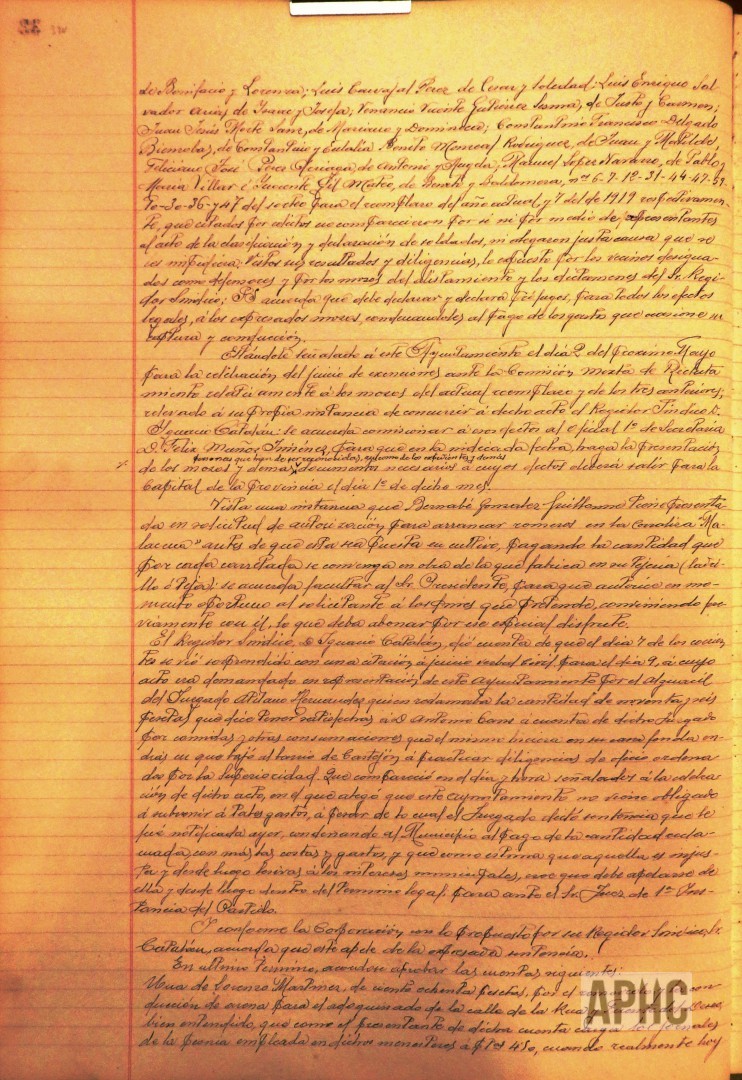 de Bonifacio y Lorenza; Luis Carvajal Perez de Cesar y Soledad; Luis Enrique Sal-
vador Arias, de Ysaac y Josefa; Venancio Vicente Gutierrez Lesma, de Justo y Carmen;
Juan Jesús Roche Sanz, de Mariano y Dominica; Constantino Francisco Delgado
de Constancio y Eulalia Benito Monreal Rodriguez, de Juan y Matilde;
Feliciano José Perez de Antonio y Magda; Manuel Lopez Navarro, de Pablo y
Maria Villar é Gil Mateo, de y Baldomera, nos 6-7-12-31-44-47-59-
70-30-36-y 47 del sorteo para el reemplazo del año actual, y 7 del de 1919 respectivamen-
te, que citados por edictos no comparecieron por si ni por medio de representantes
al acto de la clasificacion y declaracion de soldados, ni alegaron justa causa que se
lo Vistos sus resultados y diligencias, lo expuesto por los vecinos designa-
dos como defensores y por los mozos del alistamiento y los dictamenes del Sr. Regi-
dor Sindico; Se acuerda que debe declarar y declara prófugos, para todos los efectos
legales, á los expresados mozos, condenandoles al pago de los gastos que ocasione su
captura y conduccion.
Estándole señalado á este Ayuntamiento el día 2 del proximo Mayo
para la celebracion del juicio de exenciones ante la Comisión mixta de Recluta
miento relativamente á los mozos del actual reemplazo y de los tres anteriores,
relevado á su propia instancia de concurrir á dicho acto el Regidor Sindico D.
Ygnacio Catalán se acuerda comisionar á esos efectos al oficial 1º de Secretaria
D. Feliz Muñoz Jiménez, para que en la indicada fecha, haga la presentación
personas que han de ser reconocidas, asi como de los expedientes y demás
de los mozos y demas documentos necesarios á cuyos efectos deberá salir para la
Capital de la provincia el dia 1º de dicho mes.
Vista una instancia que Bernabé Gonzalez-Guillermo tiene presenta
da en solicitud de autorización para arrancar romeros en la Corraliza "Ma-
" antes de que esta sea puesta en cultivo, pagando la cantidad que
por cada carretada se convenga en obra de la que fabrica en su Tejeria (ladri-
llo ó Teja): se acuerda facultar al Sr. Presidente, para que autorice en mo-
mento oportuno al solicitante á los fines que pretende, conviniendo pre-
viamente con él, lo que deba abonar por ese especial disfrute.
El Regidor Sindico, D Ygnacio Catalán, dió cuenta de que el dia 7 de los corrien
tes se vió sorprendido con una citación á juicio verbal Civil para el dia 9, á cuyo
acto era demandado en representación de este Ayuntamiento por el Alguacil
del Juzgado Atilano Hernandez quien reclamaba la cantidad de noventa y seis
pesetas que dice tener satisfechas á D Antonio á cuenta de dicho Juzgado
por comidas y otras consumaciones que el mismo hiciera en su casa fonda en
dias en que bajó al barrio de Castejón á practicar diligencias de oficio ordena
das por la superioridad. Que compareció en el dia y hora señalados á la celebra-
ción de dicho acto, en el que alegó que este Ayuntamiento no viene obligado
á subvenir á tales gastos, á pesar de lo cual el Juzgado dictó sentencia que le
fué notificada ayer, condenando al Municipio al pago de la cantidad recla-
mada, con más las costas y gastos, y que como estima que aquella es injus-
ta y desde luego lesiva á los intereses municipales, cree que debe apelarse de
ella y desde luego dentro del termino legal para ante el Sr. Juez de 1ª Ins-
tancia del Partido.
Y conforme la Corporación con lo propuesto por su Regidor Sindico, Sr.
Catalán, acuerda que este apele de la expresada sentencia.
En ultimo termino, acordose aprobar las cuentas siguientes:
Una de Lorenzo Martinez, de ciento ochenta pesetas, por el con
duccion de arena para el adoquinado de la calle de la Rua
bien entendido, que como el presentante de dicha cuenta jornales
de la peonia empleada en dichos menesteres á ptas 4'50, cuando realmente hoy
APHC